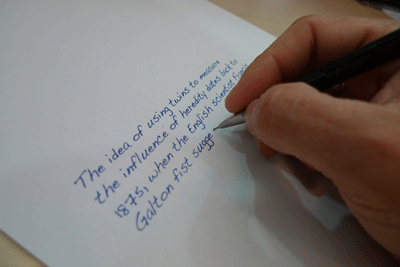 The idea of using twins to measure
the influence of heredity dates back to
1875, when the English scientist Francis
Galton fist sugge